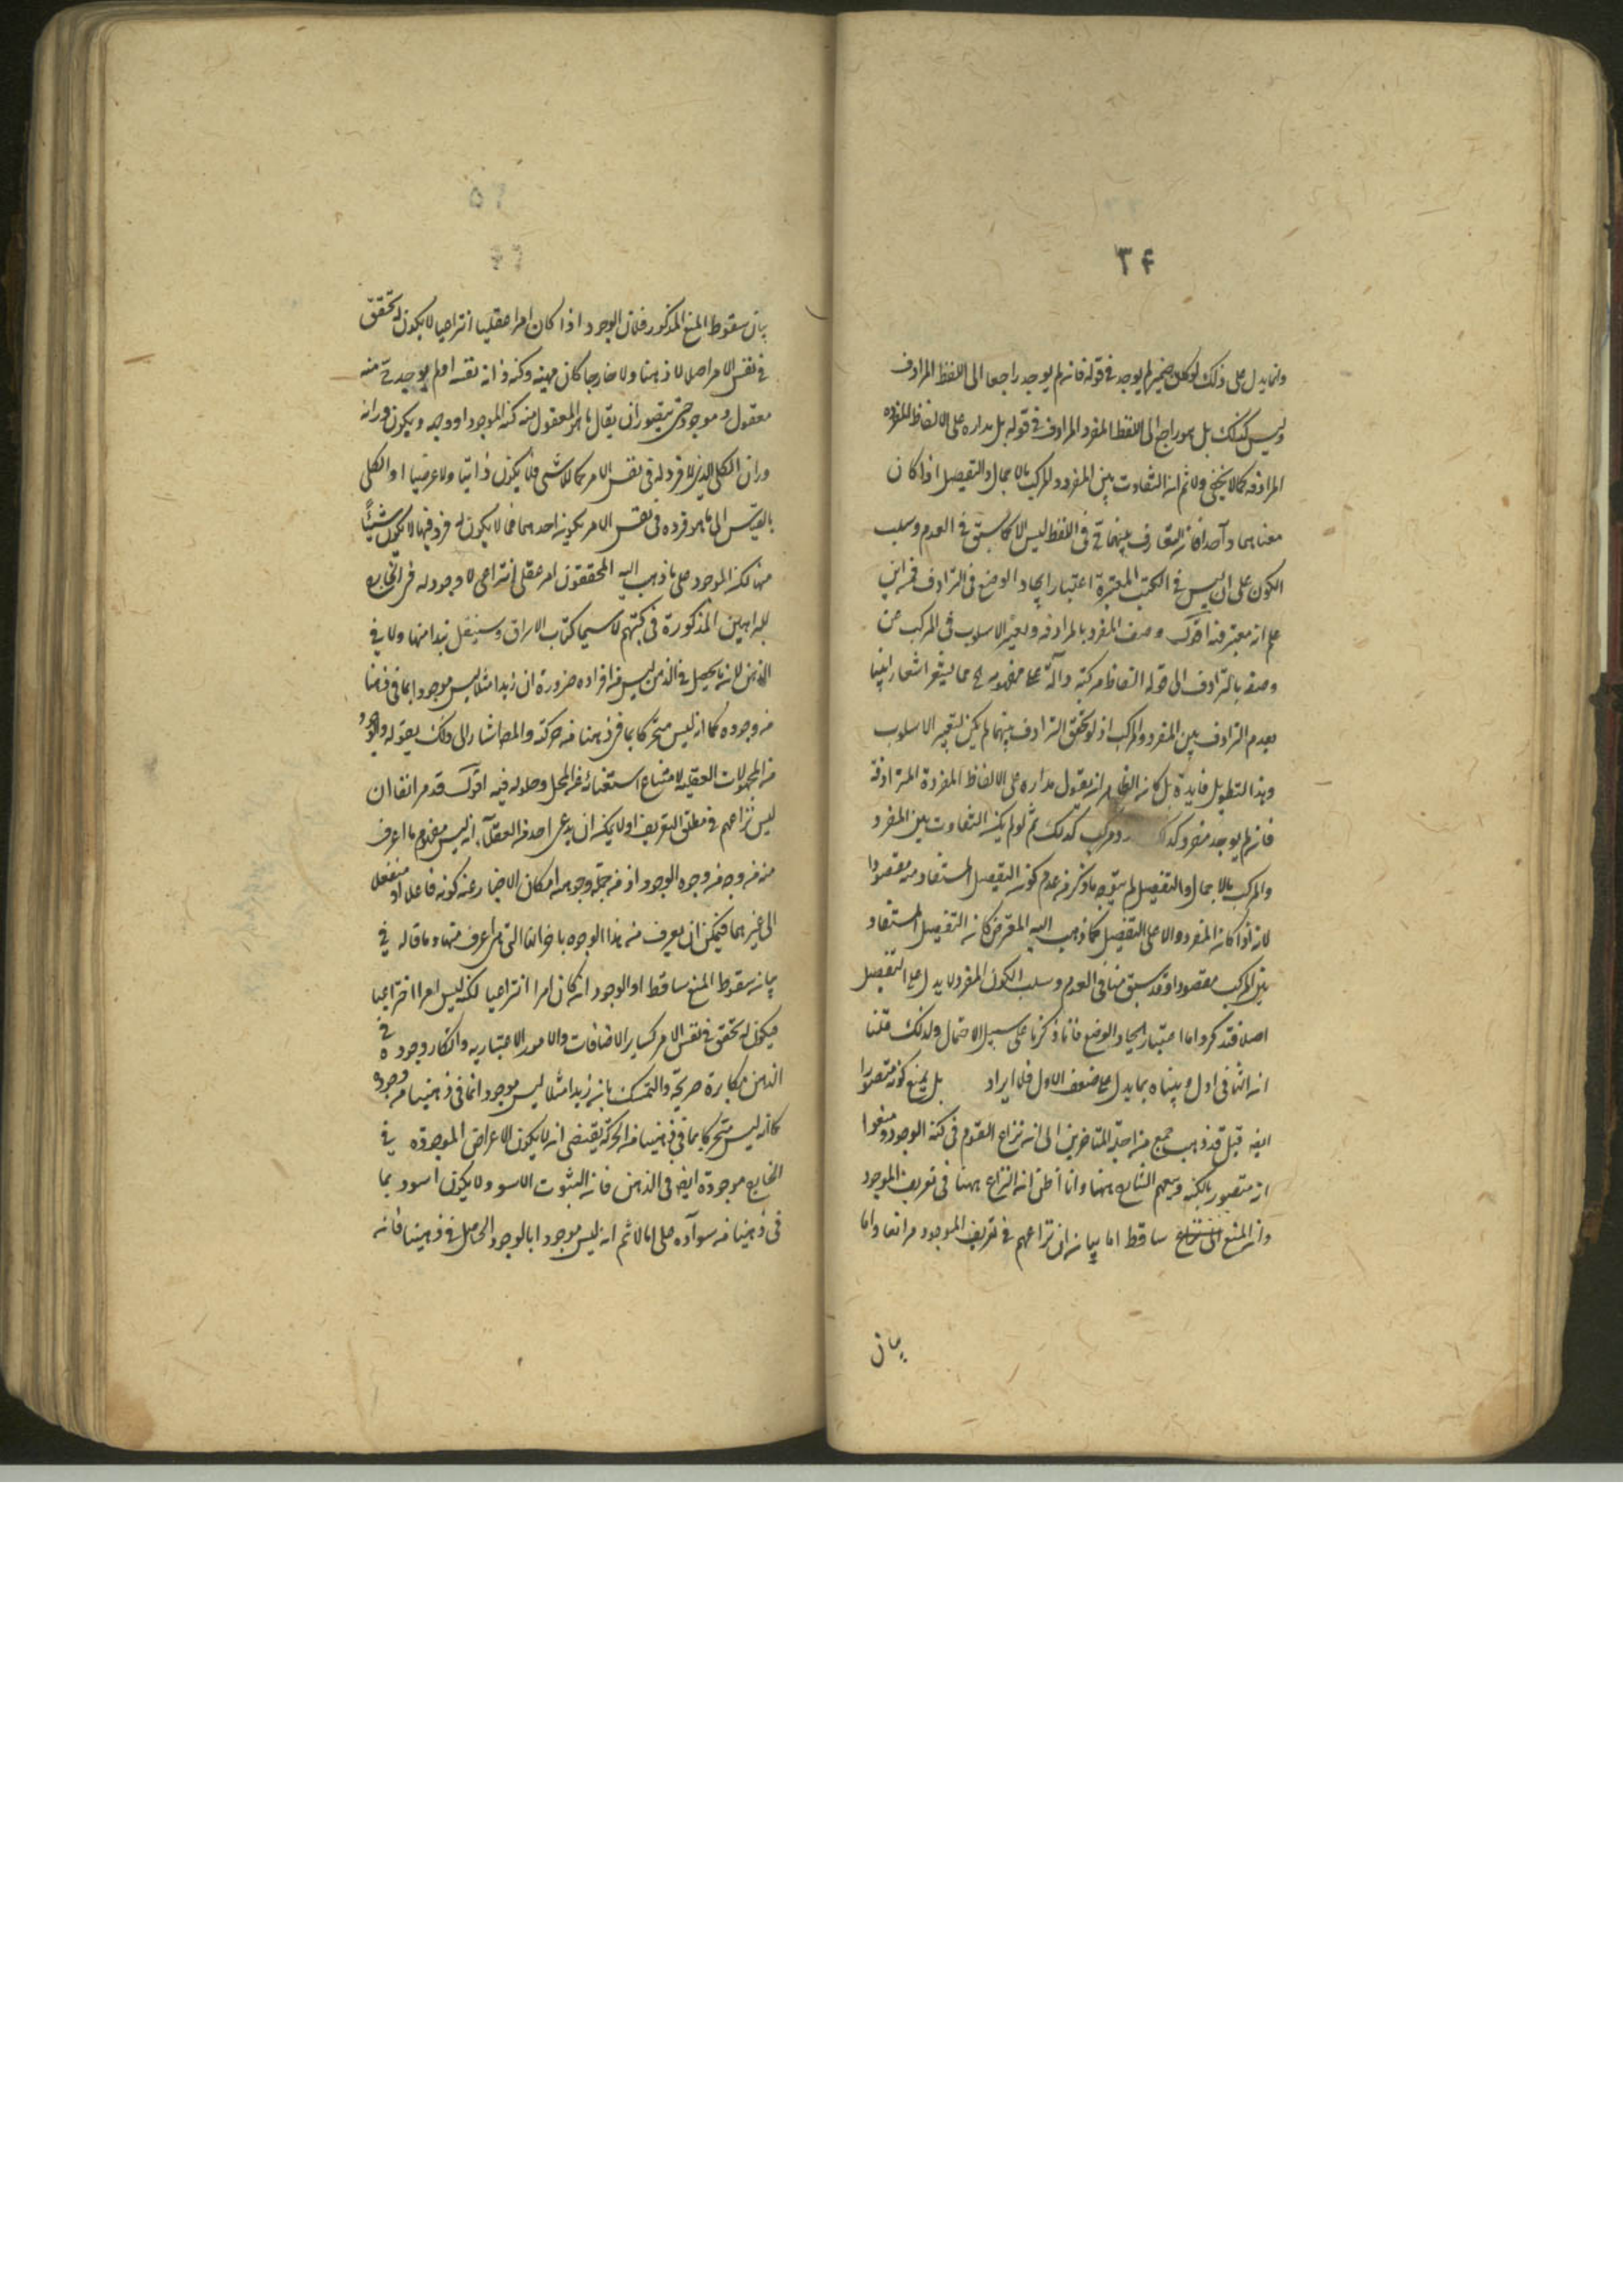 ٣۴
وانما يدل على ذلك لو كان ضمير لم يوجد في قوله فانه لم يوجد راجعا الى اللفظ المرادف
وليس كذلك بل هو راجع الى اللفظ المفرد المرادف في قوله بل مداره على الالفاظ المفرده
المرادفه كما لا يخفى ولا ثم ان التفاوت بين المفرد والمركب بالاجمال والتفصيل اذا كان
معناهما واحدا فان التعارف بينهما في اللفظ ليس الا كما سبق في العدم وسلب
الكون على ان ليس في الكتب المعتبرة اعتبار ايحاد الوضع في الترادف فمن اين
علم انه معتبر فيه اقول وصف المفرد بالمرادفه وتغير الاسلوب في المركب عن
وصفه بالترادف الى قوله الفاظ مركبة دالة على مفهومه مما يشعر اشعارا بينا
بعدم الترادف بين المفرد والمركب اذ لو تحقق الترادف بينهما لم يكن لتغيير الاسلوب
وهذا التطويل فايدة بل كان الظاهر ان يقول مداره على الالفاظ المفردة المترادفة
فانه لم يوجد مفرد كذلك ومركب كذلك ثم لو لم يكن التفاوت بين المفرد
والمركب بالاجمال والتفصيل لم يتوجه ما ذكره من عدم كون التفصيل المستفاد منه مقصودا
لانه اذا كان المفرد دالا على التفصيل كما ذهب اليه المعترض كان التفصيل المستفاد
من المركب مقصودا وقد سبق منا في العدم وسلب الكون المفرد لا يدل على التفصيل
اصلا فتذكر واما اعتبار ايحاد الوضع فانا ذكرنا على سبيل الاحتمال ولذلك قلنا
ان الثاني اول وبيناه بما يدل على ضعف الاول فلا ايراد بل يمنع كونه متصورا
ايضه قيل قد ذهب جمع من اجلة المتاخرين الى ان نزاع القوم في كنه الوجود ومنعوا
انه متصور بالكنه وتبعهم الشارح ههنا وانا اظن ان النزاع ههنا في تعريف الموجود
وان المنع ساقط اما بيان ان نزاعهم في تعريف الموجود مر انفا واما
بيان
بيان سقوط المنع المذكور فلان الوجود اذا كان امرا عقليا انتراعيا لا يكون له تحقق
في نفس الامر اصلا لا ذهنا ولا خارجا كان مهيته وكنه ذاته نفسه اولم يوجد منه
معقول وموجود حتى يتصور ان يقال ما هو المعقول منه كنه الموجود او وجهه ويكون وراءه
وراء الكلى الذي لا فرد له في نفس الامر كاللاشى فلا يكون ذاتيا ولا عرضيا اذ الكلى
بالقياس الى ما هو فرده في نفس الامر يكون احدهما فما لا يكون له فرد فيها لا يكون شيئا
منها لكن الموجود على ما ذهب اليه المحققون امر عقلى انتراعى لا وجود له في الخارج
للبراهين المذكورة في كتبهم لا سيما كتاب الاشراق وسينقل نبذا منها ولا في
الذهن لانه ما يحصل في الذهن ليس من افراده ضرورة ان زيدا مثلا ليس موجودا بما في ذهننا
من وجوده كما انه ليس متحركا بما في ذهننا من حركته والمص اشار الى ذلك بقوله والوجود
من المحمولات العقلية لامتناع استغنائه عن المحل وحلوله فيه اقول قد مر انفا ان
ليس نزاعهم في مطلق التعريف اولا يمكن ان يدعى احد من العقلاء انه ليس مفهوم ما اعرف
منه من وجه من وجوه الوجود اذ من جملة وجوهه امكان الاخبار عنه كونه فاعلا او منفعلا
الى غيرهما فيمكن ان يعرف منه هذا الوجوه باضافتها التى هى اعرف منها وما قاله في
بيان سقوط المنع ساقط اذ الوجود ان كان امرا انتراعيا لكنه ليس امرا اختراعيا
فيكون له تحقق في نفس الامر كساير الاضافات والامور الاعتباريه وانكار وجوده في
الذهن مكابرة صريحة والتمسك بان زيدا مثلا ليس موجودا بما في ذهننا من وجوده
كما انه ليس متحركا بما في ذهننا من الحركة يقتضى ان لا يكون الاعراض الموجوده في
الخارج موجودة ايضه في الذهن فان الثبوت الاسود لا يكون اسود بما
في ذهننا من سواده على انا لا ثم انه ليس موجودا بالوجود الحاصل في ذهننا فانه